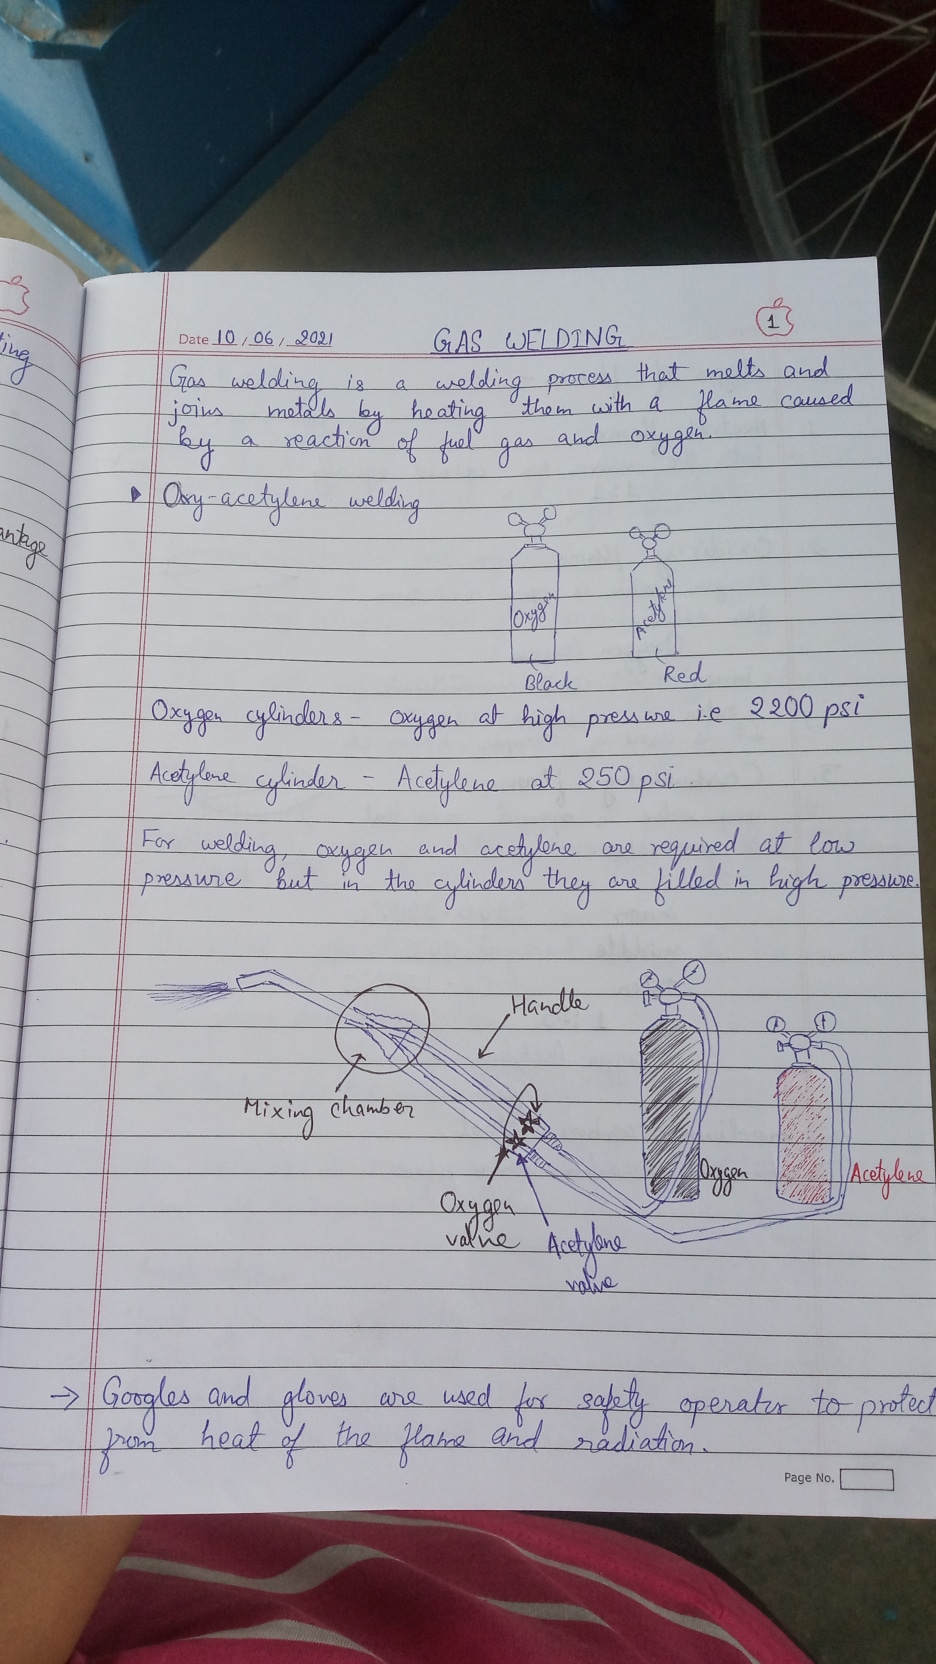 ting
antage
Date 10, 06, 2021 GAS WELDING 1
Gas welding is a welding process that melts and
joins metals by heating them with a flame caused
by a reaction of fuel gas and oxygen.
Oxy-acetylene welding
Oxygen Acetylene
Black Red
Oxygen cylinders - oxygen at high pressure i.e 2200 psi
Acetylene cylinder - Acetylene at 250 psi.
For welding, oxygen and acetylene are required at low
pressure but in the cylinders they are filled in high pressure.
Handle
Mixing chamber
Oxygen Acetylene
Oxygen
valve
Acetylene
valve
→ Googles and gloves are used for safety operator to protect
from heat of the flame and radiation.
Page No.